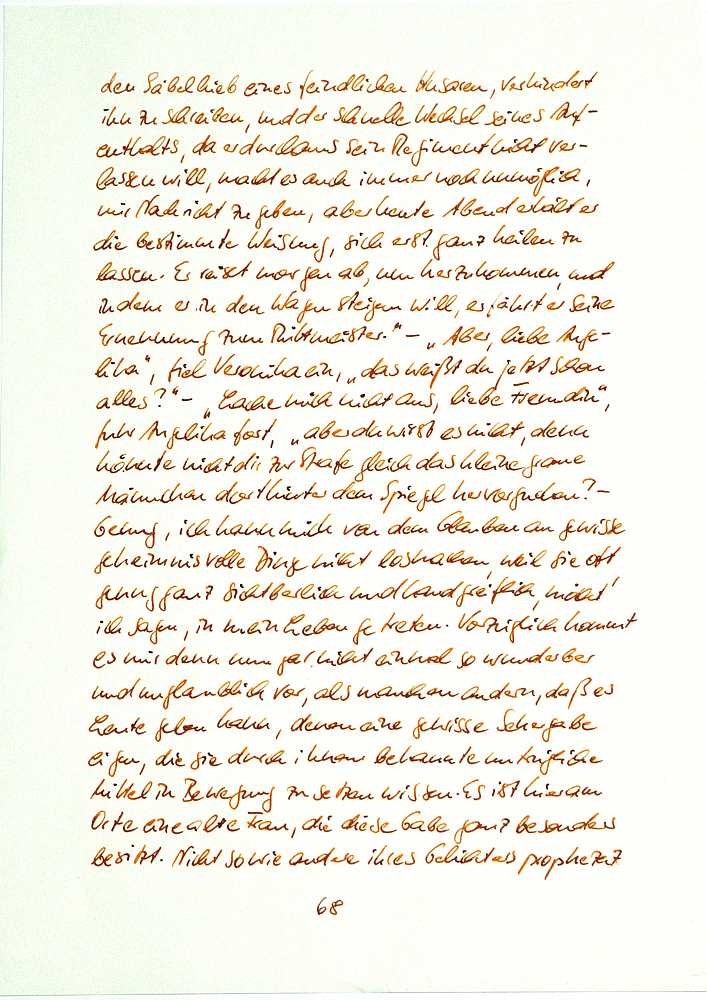 den Säbelhieb eines feindlichen Husaren, verhindert
ihn zu schreiben, und der schnelle Wechsel seines Auf-
enthalts, da er durchaus sein Regiment nicht ver-
lassen will, macht es auch immer noch unmöglich,
mir Nachricht zu geben, aber heute Abend erhält er
die bestimmte Weisung, sich erst ganz heilen zu
lassen. Er reiset morgen ab, um herzukommen, und
indem er in den Wagen steigen will, erfährt er seine
Ernennung zum Rittmeister." – „Aber, liebe Ange-
lika", fiel Veronika ein, „das weißt du jetzt schon
alles?" – „Lache mich nicht aus, liebe Freundin",
fuhr Angelika fort, „aber du wirst es nicht, denn
könnte nicht dir zur Strafe gleich das kleine graue
Männchen dort hinter dem Spiegel hervorgucken? –
Genug, ich kann mich von dem Glauben an gewisse
geheimnisvolle Dinge nicht losmachen, weil sie oft
genug ganz sichtbarlich und handgreiflich, möcht'
ich sagen, in mein Leben getreten. Vorzüglich kommt
es mir denn nun gar nicht einmal so wunderbar
und unglaublich vor, als manchen andern, daß es
Leute geben kann, denen eine gewisse Sehergabe
eigen, die sie durch ihnen bekannte untrügliche
Mittel in Bewegung zu setzen wissen. Es ist hier am
Orte eine alte Frau, die diese Gabe ganz besonders
besitzt. Nicht so wie andere ihres Gelichters prophezeit
68